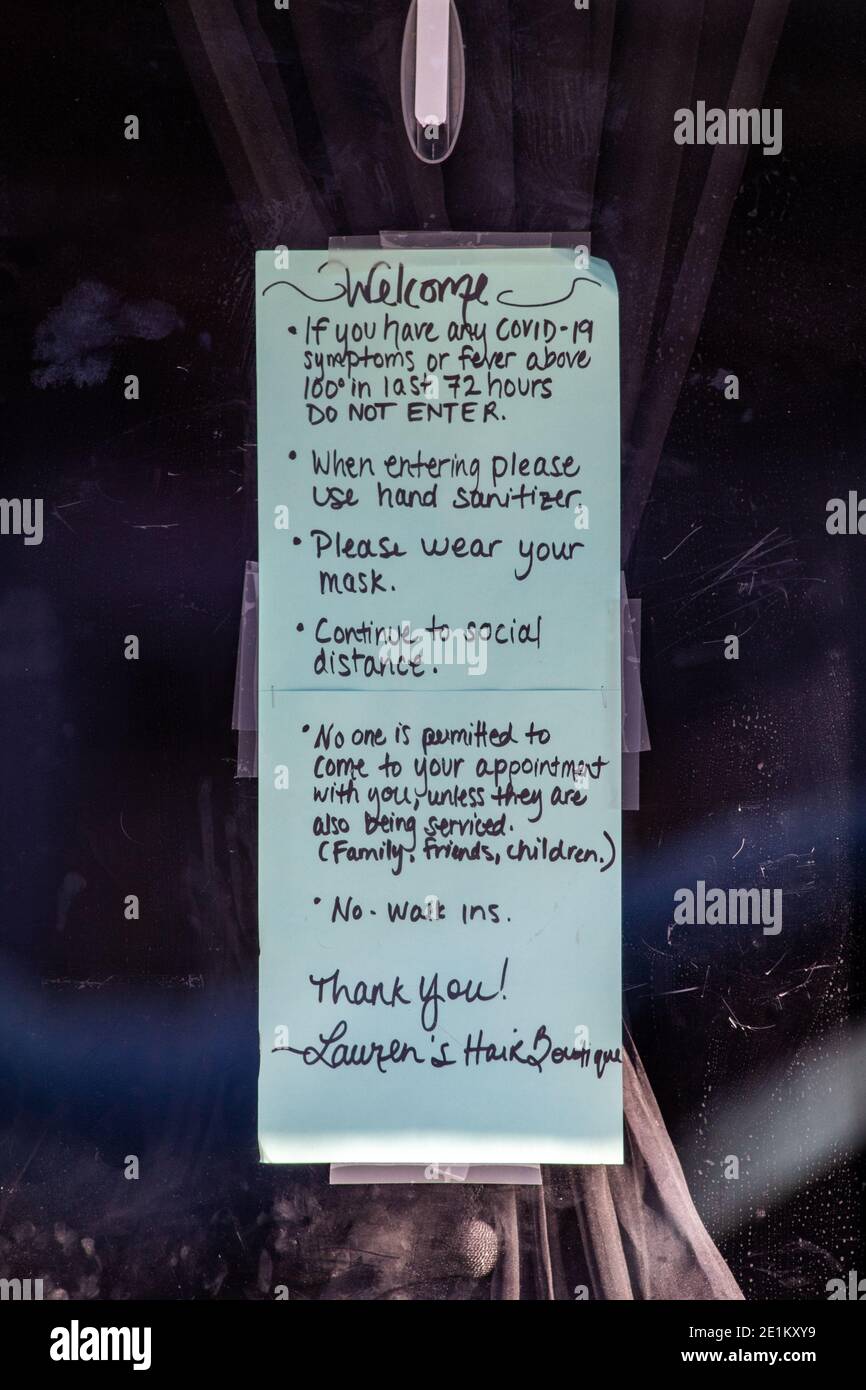 Welcome
• If you have any COVID-19
symptoms or fever above
100° in last 72 hours
DO NOT ENTER.
• When entering please
use hand sanitizer.
• Please wear your
mask.
• Continue to social
distance.
• No one is permitted to
come to your appointment
with you, unless they are
also being serviced.
(Family, friends, children.)
• No - walk ins.
Thank you!
~Lauren's Hair Boutique
alamy
a
alamy
a
alamy
alamy
alamy
Image ID: 2E1KXY9
www.alamy.com